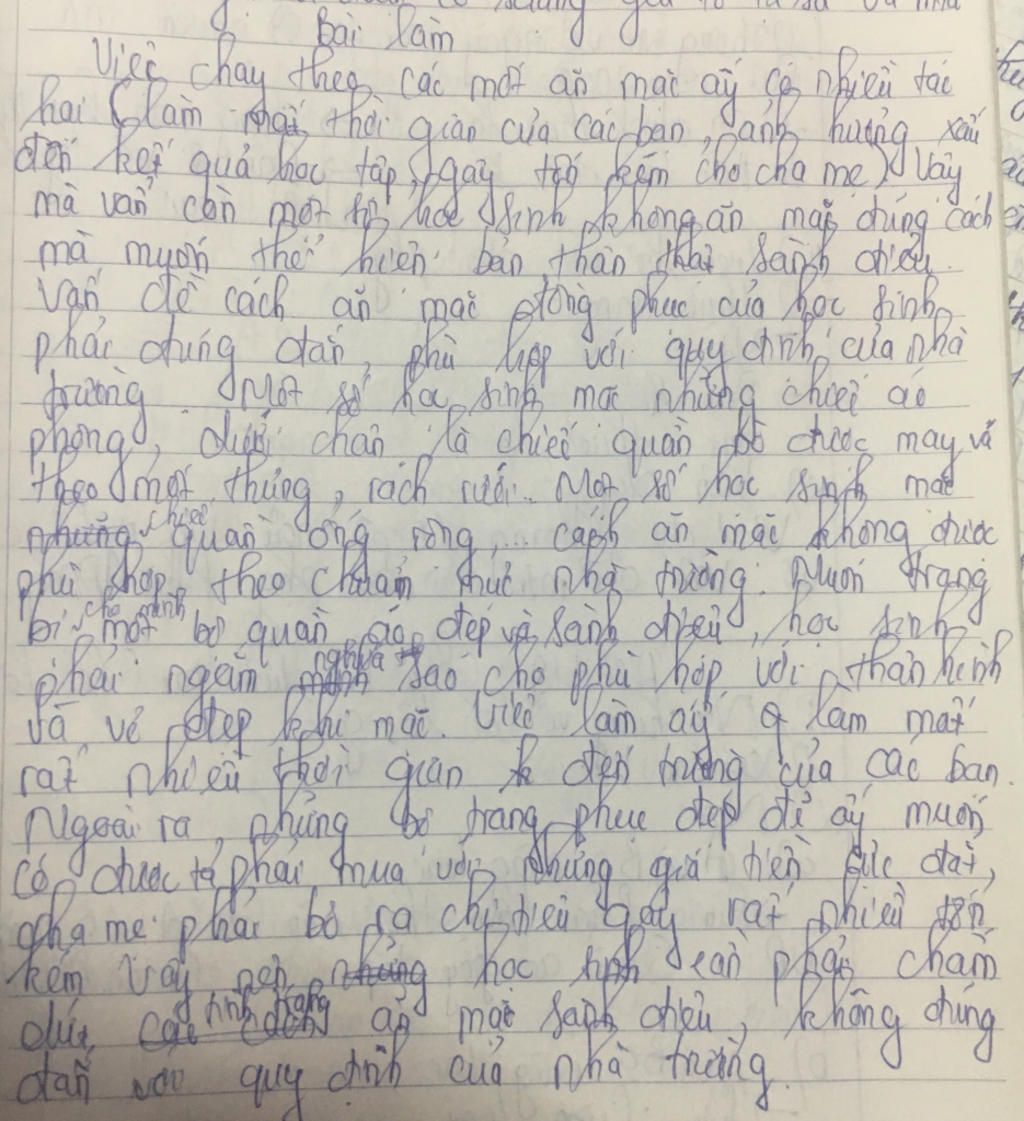 Bài làm
Việc chạy theo các mốt ăn mặc ấy có nhiều tác
hại (làm mất thời gian của các bạn, ảnh hưởng xấu
đến kết quả học tập, gây tốn kém cho cha mẹ) Vậy
mà vẫn còn một số học sinh không ăn mặc đúng cách
mà muốn thể hiện bản thân thật sành điệu.
Vấn đề cách ăn mặc đồng phục của học sinh
phải đúng đắn, phù hợp với quy định của nhà
trường. Một số học sinh mặc những chiếc áo
phông, dưới chân là chiếc quần bò được may vá
theo mốt thủng, rách rưới.. Một số học sinh mặc
chiếc quần ống rộng,... cách ăn mặc không được
phù hợp theo chuẩn mực nhà trường. Muốn trang
bị cho mình một bộ quần áo đẹp và sành điệu, học sinh
phải ngắm nghía sao cho phù hợp với thân hình
và vẻ đẹp khi mặc. Việc làm ấy làm mất
rất nhiều thời gian đến trường của các bạn.
Ngoài ra, những bộ trang phục đẹp đẽ ấy muốn
có được ta phải mua với những giá tiền cực đắt,
cha mẹ phải bỏ ra chi tiêu gây rất nhiều tốn
kém Vậy nên, học sinh cần phải chấm
dứt tình trạng ăn mặc sành điệu, không đúng
đắn quy định của nhà trường.